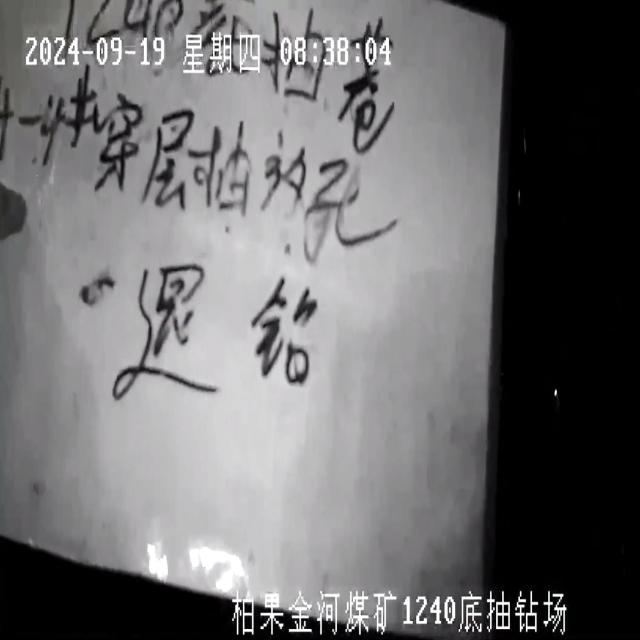 2024-09-19 星期四 08:38:04
1240底抽巷
一#穿层抽放孔
退 钻
柏果金河煤矿1240底抽钻场